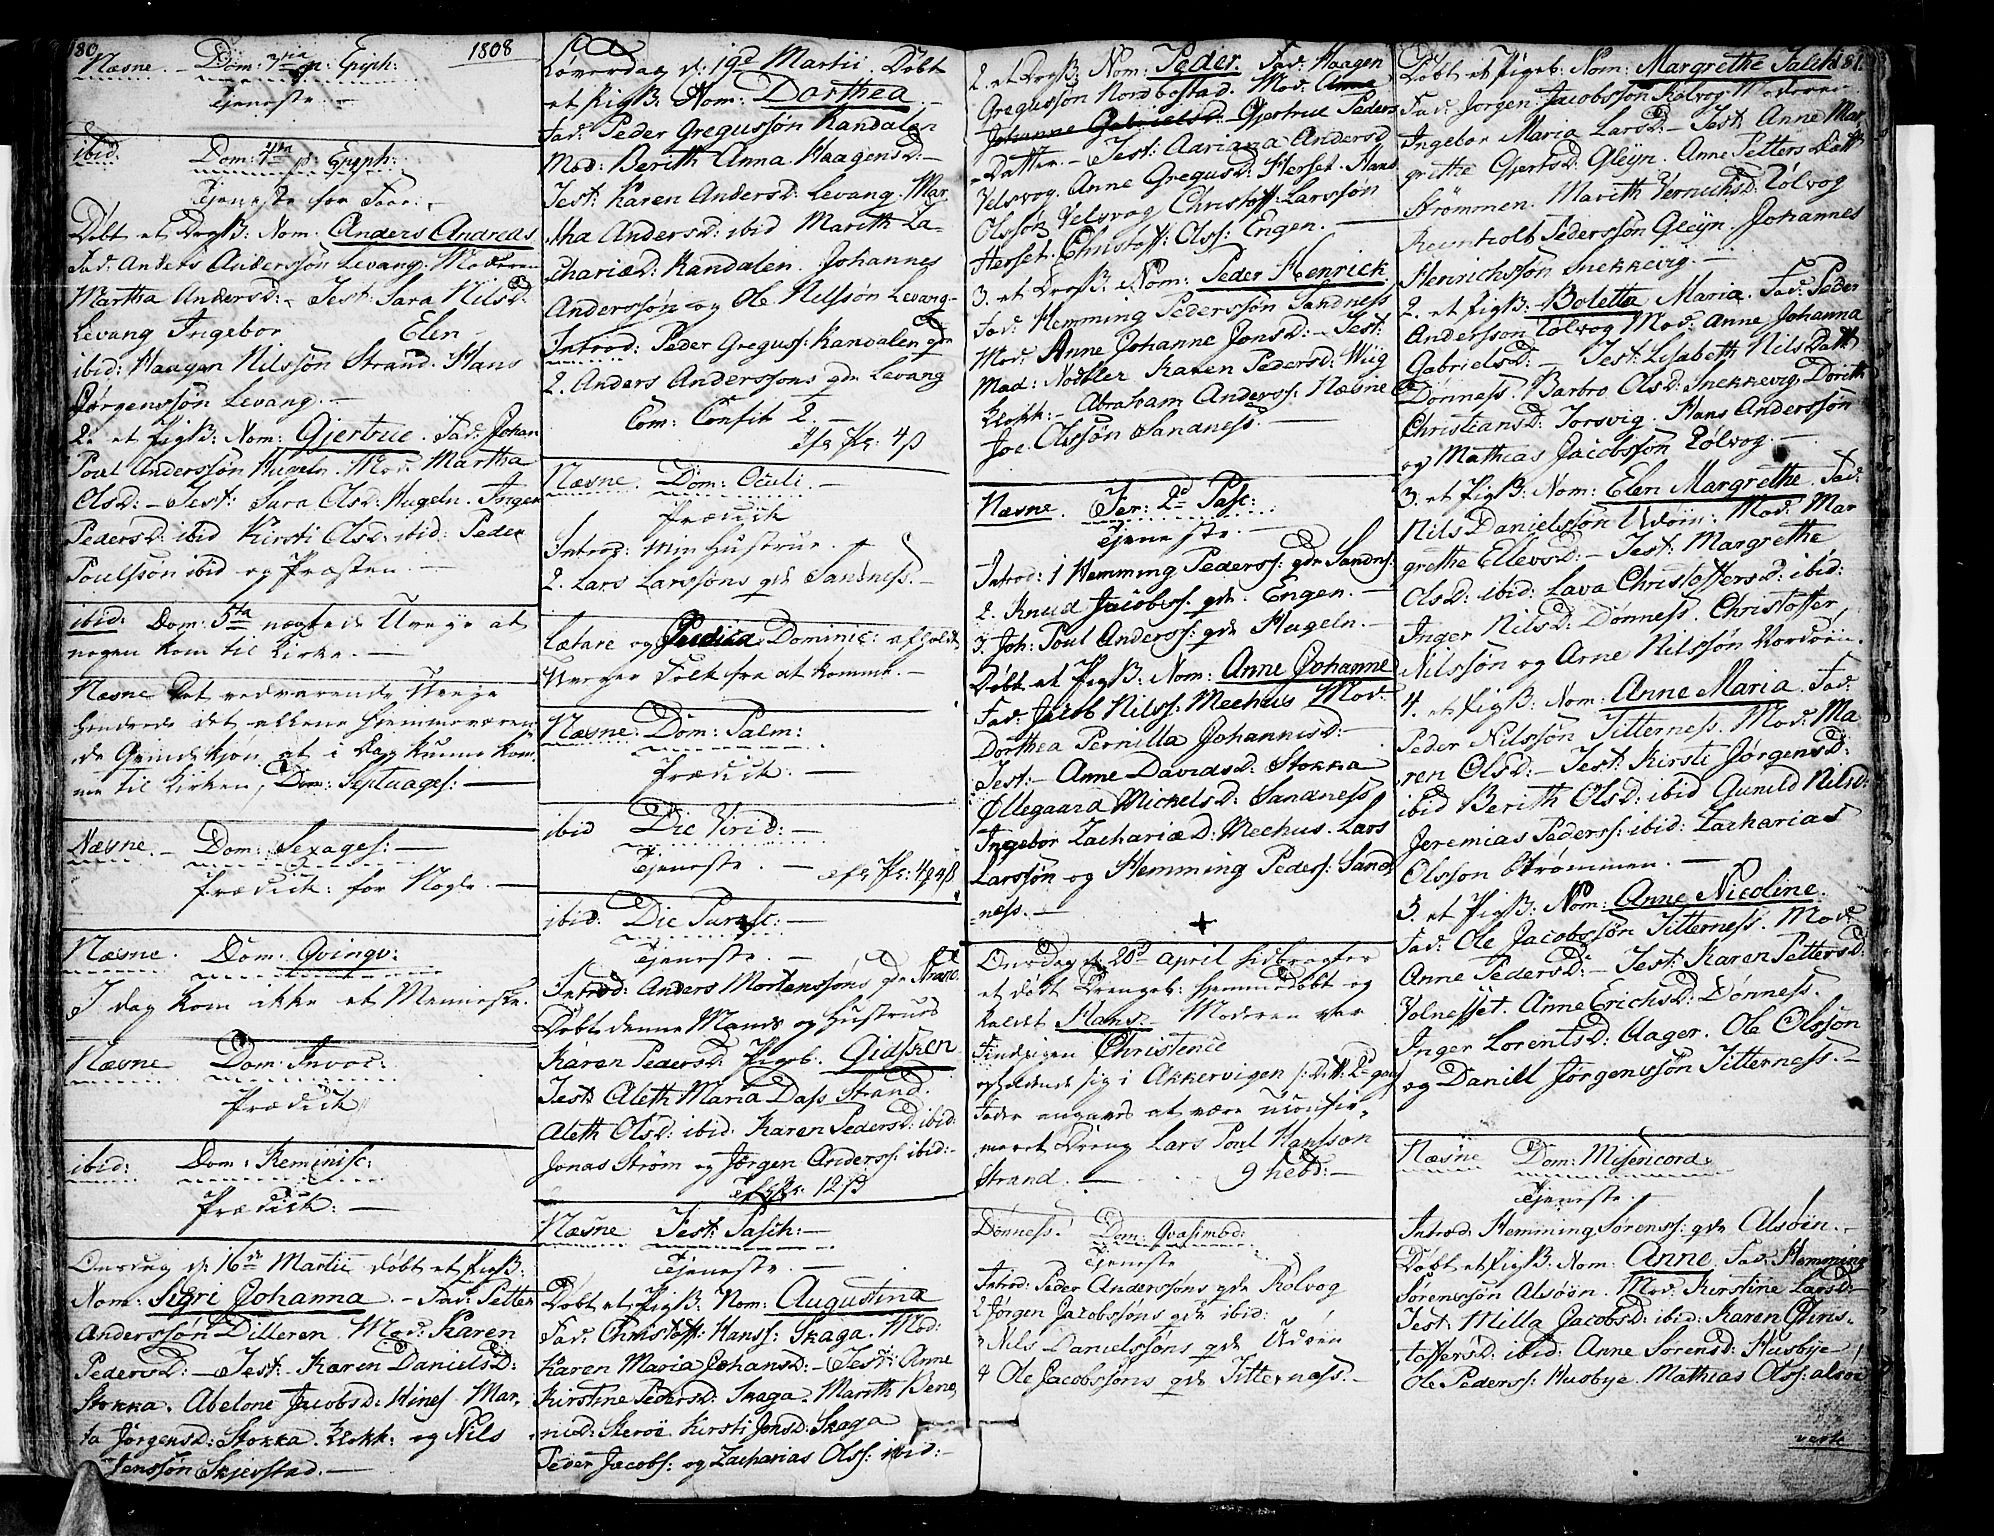 180
Næsne. Dom: 3tia p: Epiph: 1808
Tjeneste. -
ibid: Dom: 4ta p: Epiph:
Tjeneste for Faae. -
Døbt et Drgb: Nom: Anders Andreas
Fad: Anders Anderssøn Levang. Moderen
Martha Andersd: - Test: Sara Nilsd:
Levang Ingebor Elen
ibid: Haagen Nilssøn Strand. Hans
Jørgenssøn Levang. -
2. et Pigb: Nom: Gjertrue. Fad: Johan
Poul Anderssøn Hugeln. Mod: Martha
Olsd: - Test: Sara Olsd: Hugeln. Inger
Pedersd: ibid Kirsti Olsd: ibid: Peder
Poulssøn ibid og Præsten. -
ibid: Dom: 5ta nægtede Uveye at
nogen kom til Kirke. -
Næsne Det vedvarende Uveye
hindrede det allene hjemmeværen-
de Qvindekjøn at i Dag kunne kom-
me til Kirken, Dom: Septuages: -
Næsne. - Dom: Sexages: -
Prædick: for Nogle. -
Næsne. Dom: Qvinqv:
I dag kom ikke et Menneske.
Næsne Dom: Invoc:
Prædick
ibid: Dom: Reminisc:
Prædick: -
Onsdag d: 16de Martii døbt et Pigb:
Nom: Sigri Johanna. - Fad: Petter
Anderssøn Dilleren. Mod: Karen
Pedersd: - Test: Karen Danielsd:
Stokka. Abelone Jacobsd: Hines. Mar-
ta Jørgensd: Stokka. Klokk: og Nils
Jenssøn Skjerstad. -
Løverdag d: 19de Martii. Døbt
et Pigb: Nom: Dorthea. -
Fad: Peder Gregussøn Kandalen
Mod: Berith Anna Haagensd: -
Test: Karen Andersd: Levang. Mar-
tha Andersd: ibid Marith Za-
chariæd: Kandalen. Johannes
Anderssøn og Ole Nilssøn Levang-
Introd: Peder Greguss: Kandalen qde
2. Anders Anderssøns qde Levang
Com: Confit 2. -
Næsne. Dom: Oculi. -
Prædick
Introd: Min Hustrue. +
2. Lars Larssøns qde Sandness. -
Lætare og Judica Dominic: afholdt
Uveyer Folk fra at komme. -
Næsne. Dom: Palm:
Prædick: -
ibid Die Virid: -
Tjeneste. -
ibid: Die Parasc: -
Tjeneste. -
Introd: Anders Mortenssøns qde Strand.
Døbt denne Mands og Hustrues
Karen Pedersd: Pigeb. Gidsken
Test: Aleth Maria Dass Strand.
Aleth Olsd: ibid. Karen Pedersd: ibid:
Jonas Strøm og Jørgen Anderss: ibid: -
Næsne Fest: Pasch: -
Tjeneste. -
Døbt et Pigb: Nom: Augustina
Fad: Christoff: Hanss: Skaga. Mod:
Karen Maria Johansd: - Test: Anne
Kirstine Pedersd: Skaga. Marith Bene
nicd: Skeroe. Kirsti Jonsd: Skaga
Peder Jacobs: og Zacharias Olss: ibid: -
2. et Drgb: Nom: Peder. Fad: Haagen
Gregussøn Nordbostad. Mod: Anne
Johanne Gabrielsd: Gjertrue Peders
Datter. - Test: Aariana Andersd:
Velsvog. Anne Gregusd: Herset. Hans
Olssøn Velsvog Christoff: Larssøn
Herset. Christoff: Olss: Engen. -
3. et Drgb: Nom: Peder Henrick
Fad: Hemming Pederssøn Sandness
Mod: Anne Johanne Jonsd: - Test:
Mad: Nobler Karen Pedersd: Wiig
Klokk: - Abraham Anderss: Næsne
Joe. Olssøn Sandness. -
Næsne. Fer: 2d Pasc:
Tjeneste. -
Introd: 1 Hemming Pederss: qde Sandns:
2. Knud Jacobss: qde Engen. -
3. Joh: Poul Anderss: qde Hugeln. -
Døbt et Pigb: Nom: Anne Johanne
Fad: Jacob Nilss: Meehuus Mod:
Dorthea Pernilla Johannisd: -
Test: - Anne Davidsd: Stokka
Øllegaara Mickelsd: Sandness
Ingebor Zachariæd: Meehus. Lars
Larssøn og Hemming Peders: Sand-
ness. -
Onsdag d: 20d April hidbragtes
et dødt Drengeb: hjemmedøbt og
kaldet Hans. Moderen var
Findpigen Christence
opholdende sig i Akkervigen
Fader angaves at være uconfir-
meret Dreng Lars Poul Hansson
Strand. - 9 hebd: -
Dønness. Dom: Qvasimod:
Tjeneste
Introd: Peder Anderssøns qde Rølvog
2 Jørgen Jacobssøns qde ibid:
3 Nils Danielssøns qde Udøin
4 Ole Jacobssøns qde Titterness. -
181.
Døbt et Pigeb: Nom: Margrethe
Fad: Jørgen Jacobssøn Rølvog Moderen
Ingebor Maria Larsd: - Test: Anne Mar-
grethe Gjertsd: Gleijn. Anne Petters Datt
Strømmen. Marith Vernichsd: Rølvog
Reinholt Pederssøn Gleijn. Johannes
Henrichssøn Snekkevig. -
2. et Pigb: Boletta Maria. Fad: Peder
Anderssøn Rølvog Mod: Anne Johanna
Gabrielsd: - Test: Lisabeth Nils Datt
Dønness. Barbro Olsd: Snekkevig. Dorith
Christiansd: Torsvig. Hans Anderssøn
og Mathias Jacobssøn Rølvog. -
3. et Pigb: Nom: Elen Margrethe. Fad:
Nils Danielssøn Udøin. Mod: Mar
grethe Ellevsd: - Test: Margrethe
Olsd: ibid: Lava Christoffersd: ibid:
Inger Nilsd: Dønness. Christoffer
Nilssøn og Arne Nilssøn Nordøin.
4. et Pigb: Nom: Anne Maria. Fad:
Peder Nilssøn Titterness. Mod: Ma
ren Olsd: - Test: Kirsti Jørgensd:
ibid Berith Olsd: ibid Gunild Nilsd:
Jeremias Pederss: ibid: Zacharias
Olsson Strømmen. -
5. et Pigb: Nom: Anne Nicoline.
Fad: Ole Jacobssøn Titterness. Mod:
Anne Pedersd: - Test: Karen Pettersd:
Volnesset. Anne Erichsd: Dønness.
Inger Lorentsd: Aager. Ole Olsson
og Daniel Jørgenssøn Titterness. -
Næsne Dom: Misericord:
Tjeneste. -
Introd: Hemming Sørenss: qde Alsøin. -
Døbt et Pigb: Nom: Anne. Fad: Hemming
Sørenssøn Alsøin. Mod: Kirstine Larsd:
Test: Milla Jacobsd: ibid: Karen Chris-
toffersd: ibid: Anne Sørensd: Husbye
Ole Pederss: Husbye. Mathias Olss: alsøe
verte